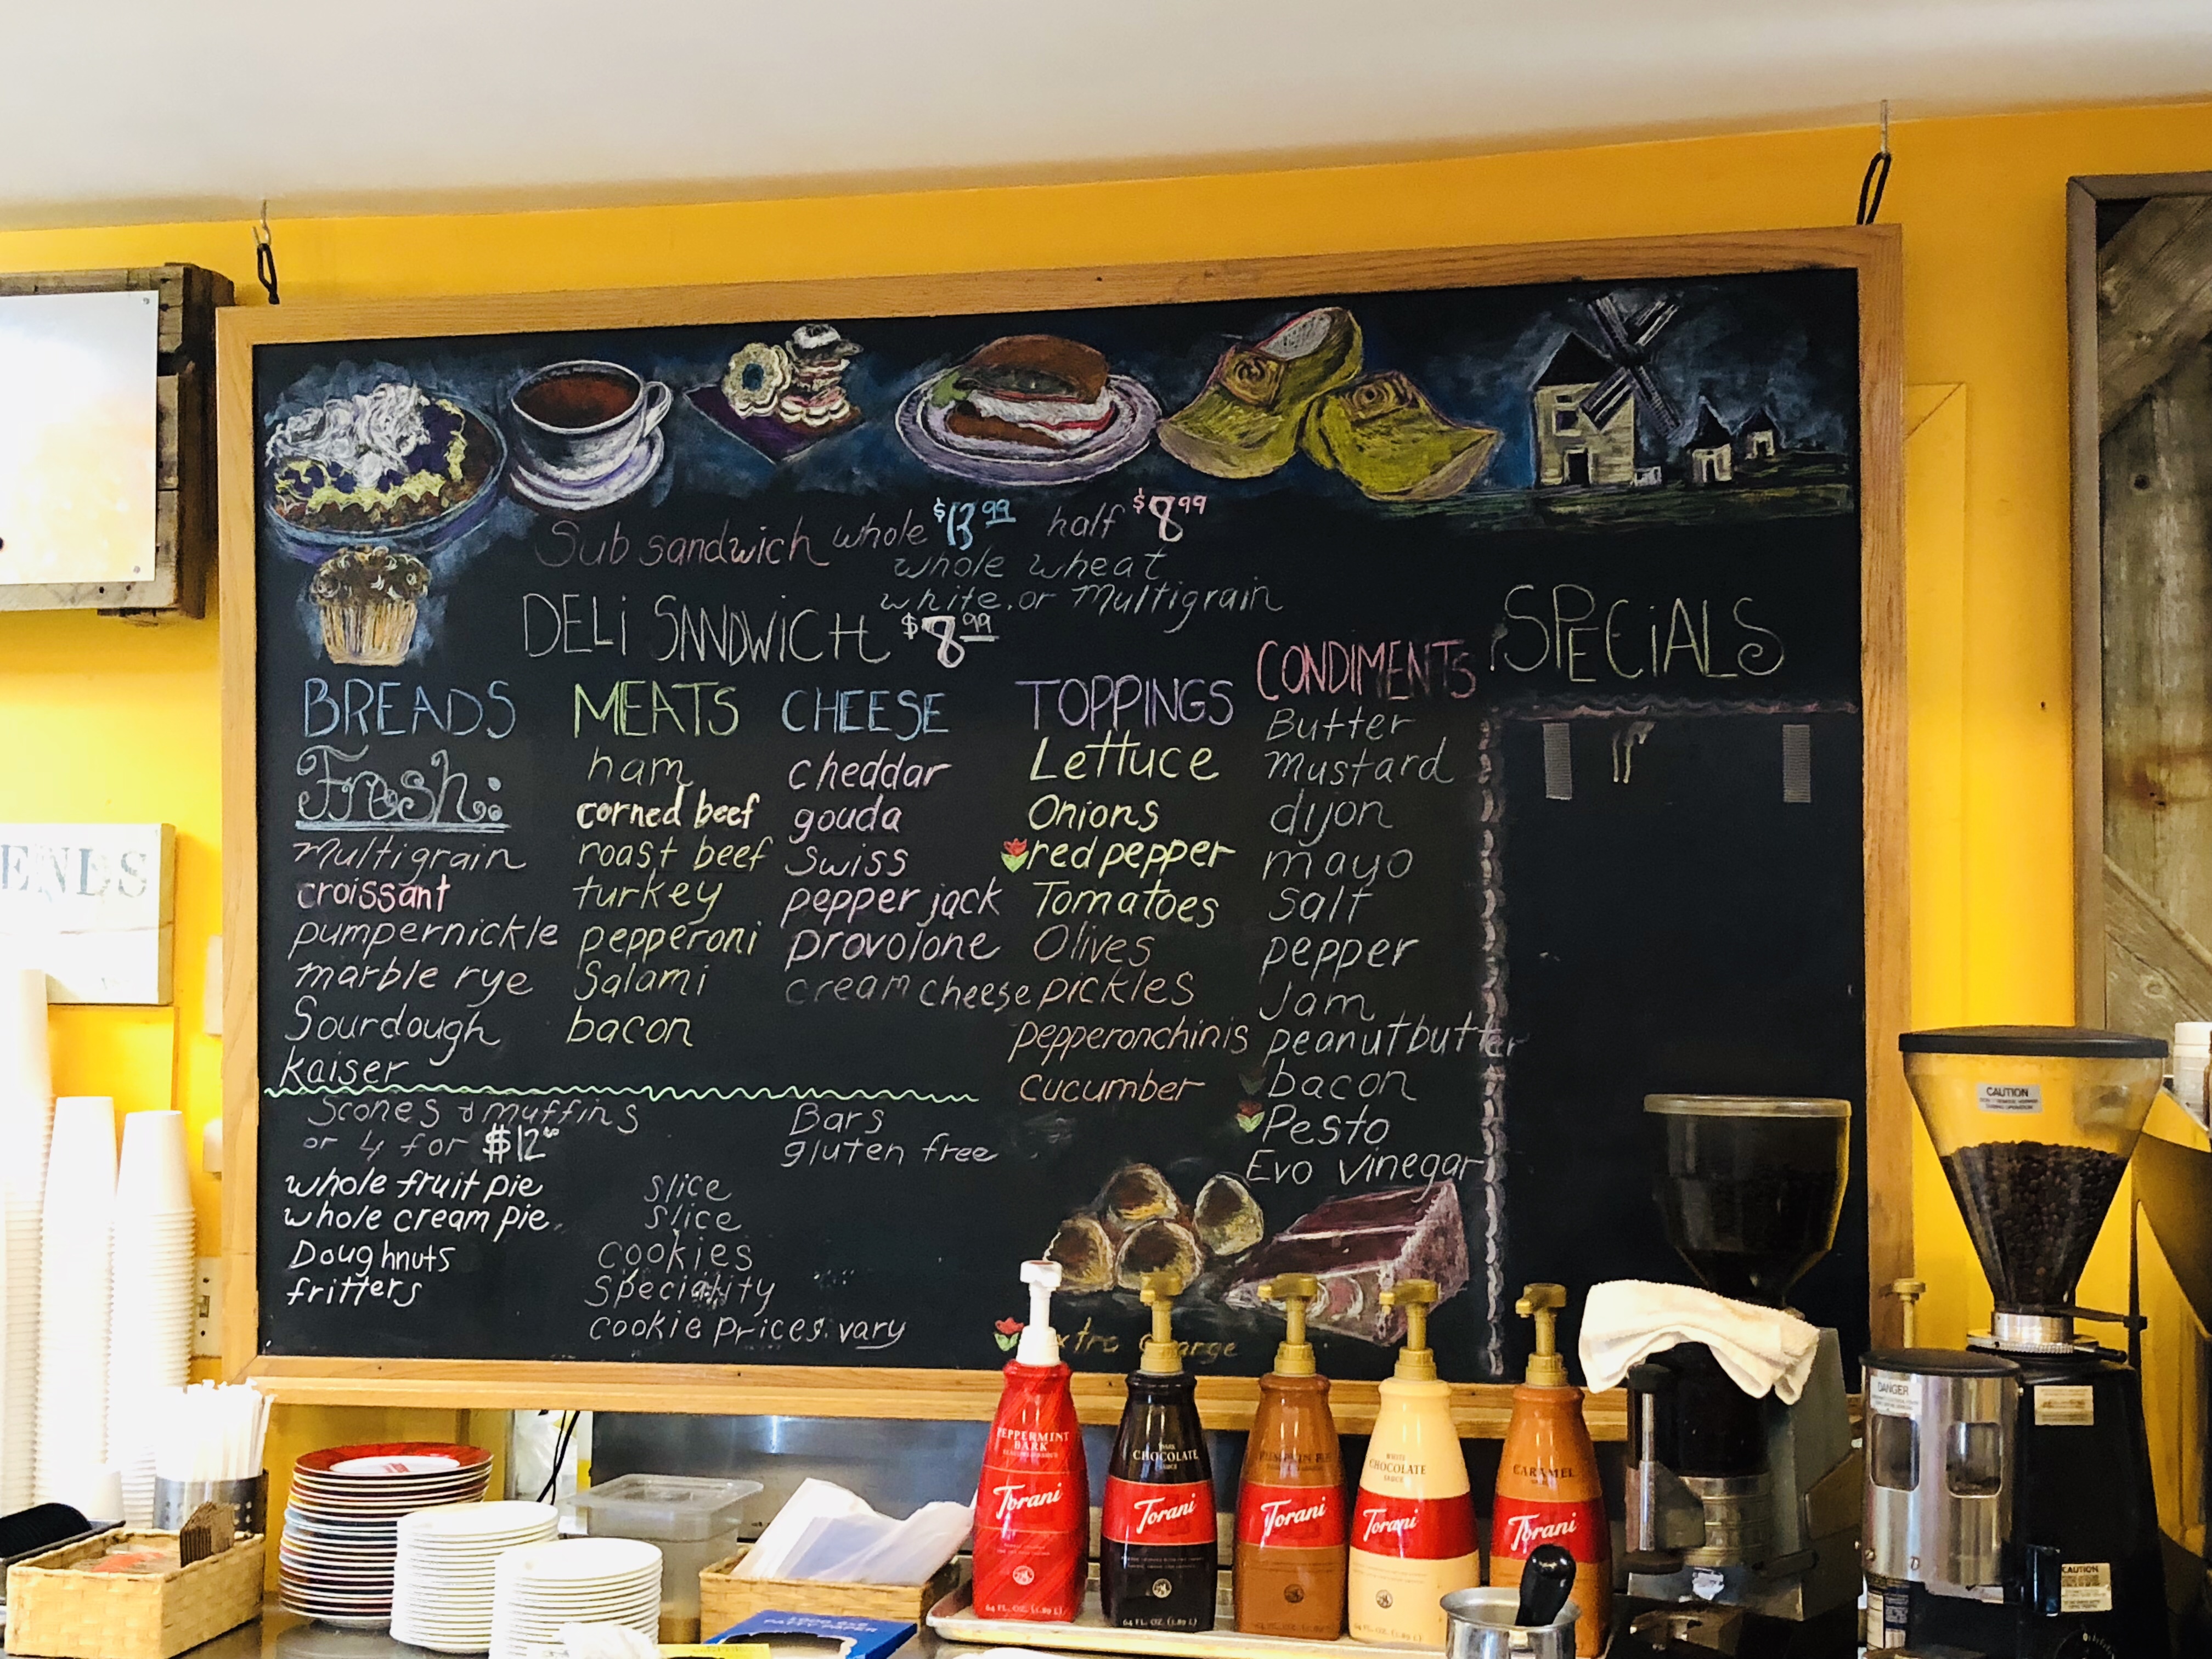 Sub sandwich whole $13.99 half $8.99
whole wheat
white, or Multigrain
DELi SANDWICH $8.99
BREADS
Fresh:
Multigrain
croissant
pumpernickle
marble rye
Sourdough
kaiser
MEATS
ham
corned beef
roast beef
turkey
pepperoni
Salami
bacon
CHEESE
cheddar
gouda
Swiss
pepper jack
provolone
cream cheese
TOPPINGS
Lettuce
Onions
red pepper
Tomatoes
Olives
pickles
pepperonchinis
cucumber
CONDIMENTS
Butter
Mustard
dijon
mayo
Salt
pepper
Jam
peanutbutter
bacon
Pesto
Evo vinegar
SPECiALS
Scones & muffins
or 4 for $12
Bars
gluten free
whole fruit pie slice
whole cream pie slice
Doughnuts
fritters
cookies
Speciality
cookie prices vary
ENDS
PEPPERMINT
BARK
Torani
64 FL. OZ. (1.89 L)
DARK
CHOCOLATE
SAUCE
Torani
64 FL. OZ. (1.89 L)
Torani
WHITE
CHOCOLATE
SAUCE
Torani
64 FL. OZ. (1.89 L)
CARAMEL
Torani
CAUTION
DANGER
CAUTION